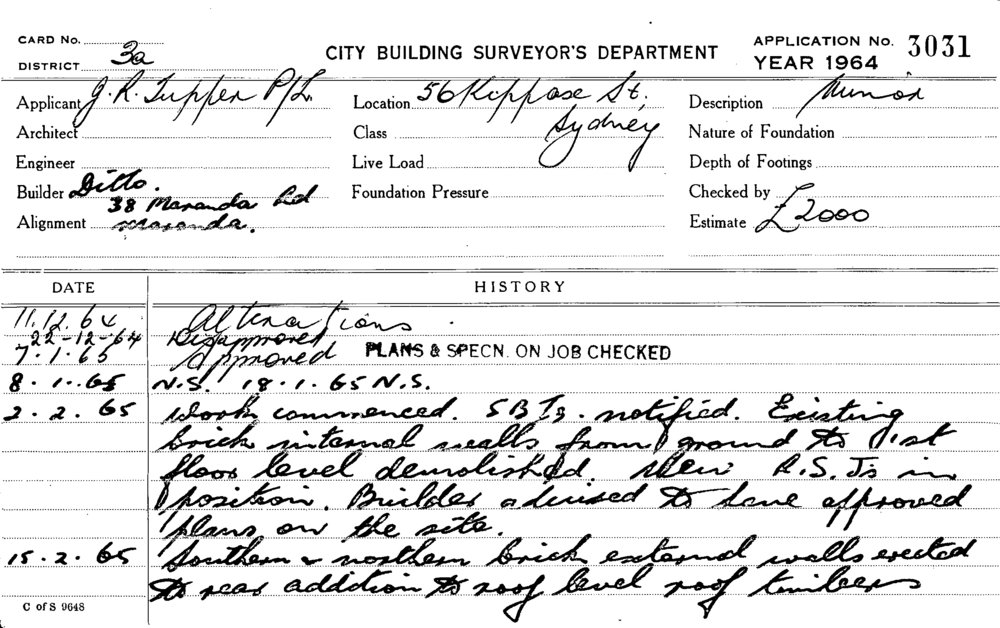 CARD No.
DISTRICT 3a
CITY BUILDING SURVEYOR'S DEPARTMENT
APPLICATION No. 3031
YEAR 1964
Applicant J. R. Tupper P/L.
Location 56 Kippase St,
Sydney
Description Minor
Architect
Class
Nature of Foundation
Engineer
Live Load
Depth of Footings
Builder Ditto.
38 Maranda Rd
Foundation Pressure
Checked by
Alignment
Estimate £2000
DATE
HISTORY
11.12.64 Alterations
22-12-64 Disapproved
7.1.65 Approved PLANS & SPECN. ON JOB CHECKED
8.1.65 N.S. 18.1.65 N.S.
2.2.65 Work commenced. SBIs. notified. Existing
brick internal walls from ground to 1st
floor level demolished. New R.S.Js in
position. Builder advised to have approved
plans on the site.
15.2.65 Southern & northern brick external walls erected
to rear addition to roof level roof timbers
C of S 9648